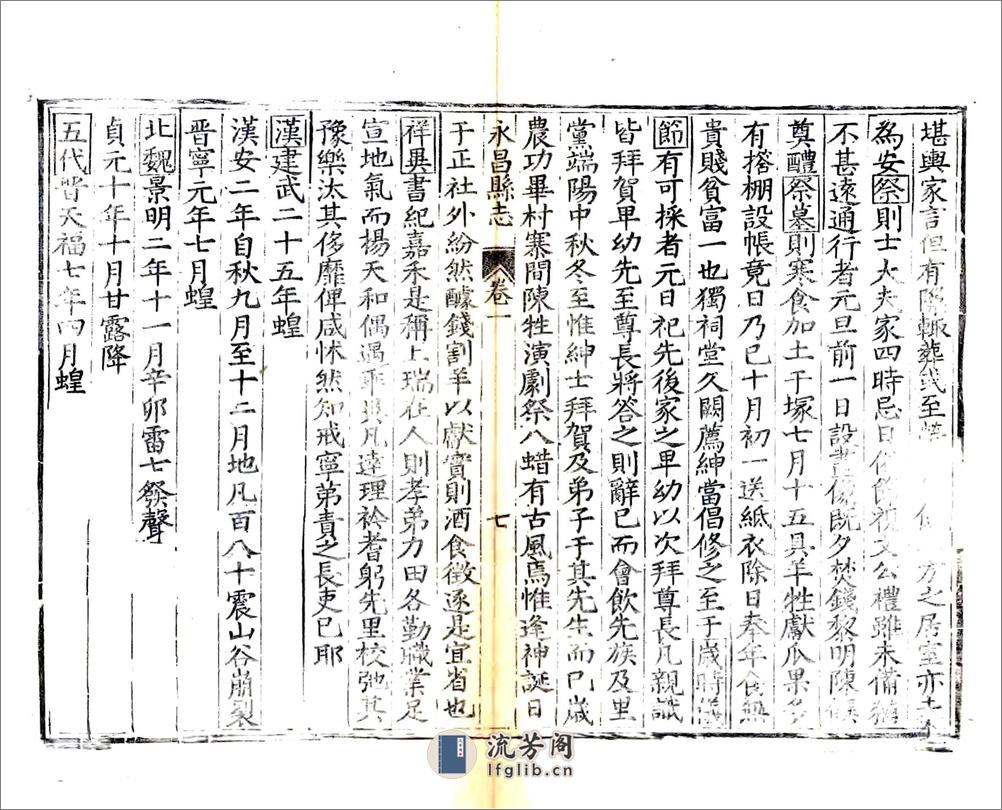 堪輿家言但有隙輒葬或至
方之居室亦
為安祭則士大夫家四時忌日
文公禮雖未備猶
不甚遠通行者元旦前一日設畫像既夕焚錢黎明陳
奠醴祭墓則寒食加土于塚七月十五具羊牲獻瓜果多
有搭棚設帳竟日乃已十月初一送紙衣除日奉年食無
貴賤貧富一也獨祠堂久闕薦紳當倡修之至于歲時
節有可採者元日祀先後家之卑幼以次拜尊長凡親識
皆拜賀卑幼先至尊長將答之則辭已而會飲先族及里
黨端陽中秋冬至惟紳士拜賀及弟子于其先生而已歲
農功畢村寨間陳牲演劇祭八蜡有古風焉惟逢神誕日
永昌縣志 卷一 七
于正社外紛然醵錢割羊以獻實則酒食徵逐是宜省也
祥異書紀嘉禾是稱上瑞在人則孝弟力田各勤職業足
宣地氣而揚天和偶遇乖異凡達理衿耆躬先里校弛其
豫樂汰其侈靡俾咸怵然知戒寧第責之長吏已耶
漢建武二十五年蝗
漢安二年自秋九月至十二月地凡百八十震山谷崩裂
晋寧元年七月蝗
北魏景明二年十一月辛卯雷七發聲
貞元十年十月甘露降
五代晋天福七年四月蝗
流芳阁
lfglib.cn